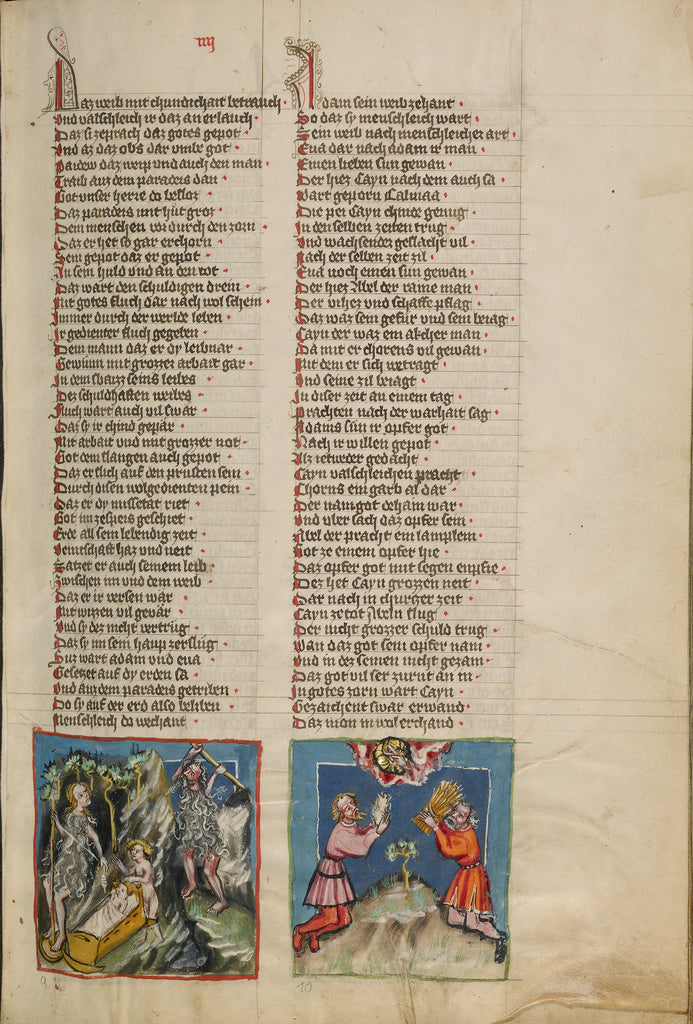 IIII
Daz weib mit chundichait betrauch
Vnd valschleich ir daz an erlauch
Daz si zeprach daz gotes gepot
Vnd az daz obs dar vmbe got
Paidew daz weip vnd auch den man
Traib auz dem paradeis dan
Got vnser herre do besloz
Daz paradeis mit hüt groz
Dem menschen vor durch den zorn
Daz er het so gar erchorn
Sein gepot daz er gepot
An sein huld vnd an den tot
Daz wart den schuldigen drein
Mit gotes fluch dar nach wol schein
Immer durch der werlde leben
Ir gedienter fluch gegeben
Dem mann daz er dy leibnar
Gewünn mit grozzer arbait gar
In dem swaizz seins leibes
Dez schuldhaften weibes
Fluch wart auch vil swar
Daz sy ir chind gepär
Mit arbait vnd mit grozzer not
Got dem slangen auch gepot
Daz er slich auf den prüsten sein
Durch disen wolgedienten pein
Daz er dy missetat riet
Got im ze speis geschiet
Erde all sein lebendig zeit
Veintschaft haz vnd neit
Satzet er auch seinem leib
Zwischen im vnd dem weib
Daz er ir versen war
Mit wizzen vil gevär
Vnd sy dez nicht vertrüg
Daz sy im sein haup zerslüg
Suz wart adam vnd eua
Gesetzet auf dy erden sa
Vnd auz dem paradeis getriben
Do sy auf der erd also beliben
Menschleich do wechant
Adam sein weib zehant
So daz sy menschleich wart
Sein weib nach menschleicher art
Eua dar nach adam ir man
Einen lieben sun gewan
Der hiez Cayn nach dem auch sa
Wart geporn Calmaa
Die pei Cayn chinde genug
In den selben zeiten trug
Vnd wachsendez geslächt vil
Nach der selben zeit zil
Eua noch einen sun gewan
Der hiez Abel der raine man
Der vihez vnd schaffe pflag
Daz waz sein gefür vnd sein beiag
Cayn der waz ein akcher man
Da mit er chorens vil gewan
Mit dem er sich betragt
Vnd seine zil beiagt
In diser zeit an einem tag
Prachten nach der warhait sag
Adams sün ir opfer got
Nach ir willen gepot
Als ietweder gedacht
Cayn valschleichen pracht
Chorns ein garb al dar
Der nam got dehain war
Vnd vber sach daz opfer sein
Abel der pracht ein lamplein
Got ze einem opfer hie
Daz opfer got mit segen enpfie
Dez het Cayn grozzen neit
Dar nach in churczer zeit
Cayn ze tot Abeln slug
Der nicht grozzer schuld trug
Wan daz got sein opfer nam
Vnd in dez seinen nicht gezam
Daz got vil ser zurnt an im
In gotes zorn wart Cayn
Gezaichent swar er wand
Daz mon in wol erchand
9
10